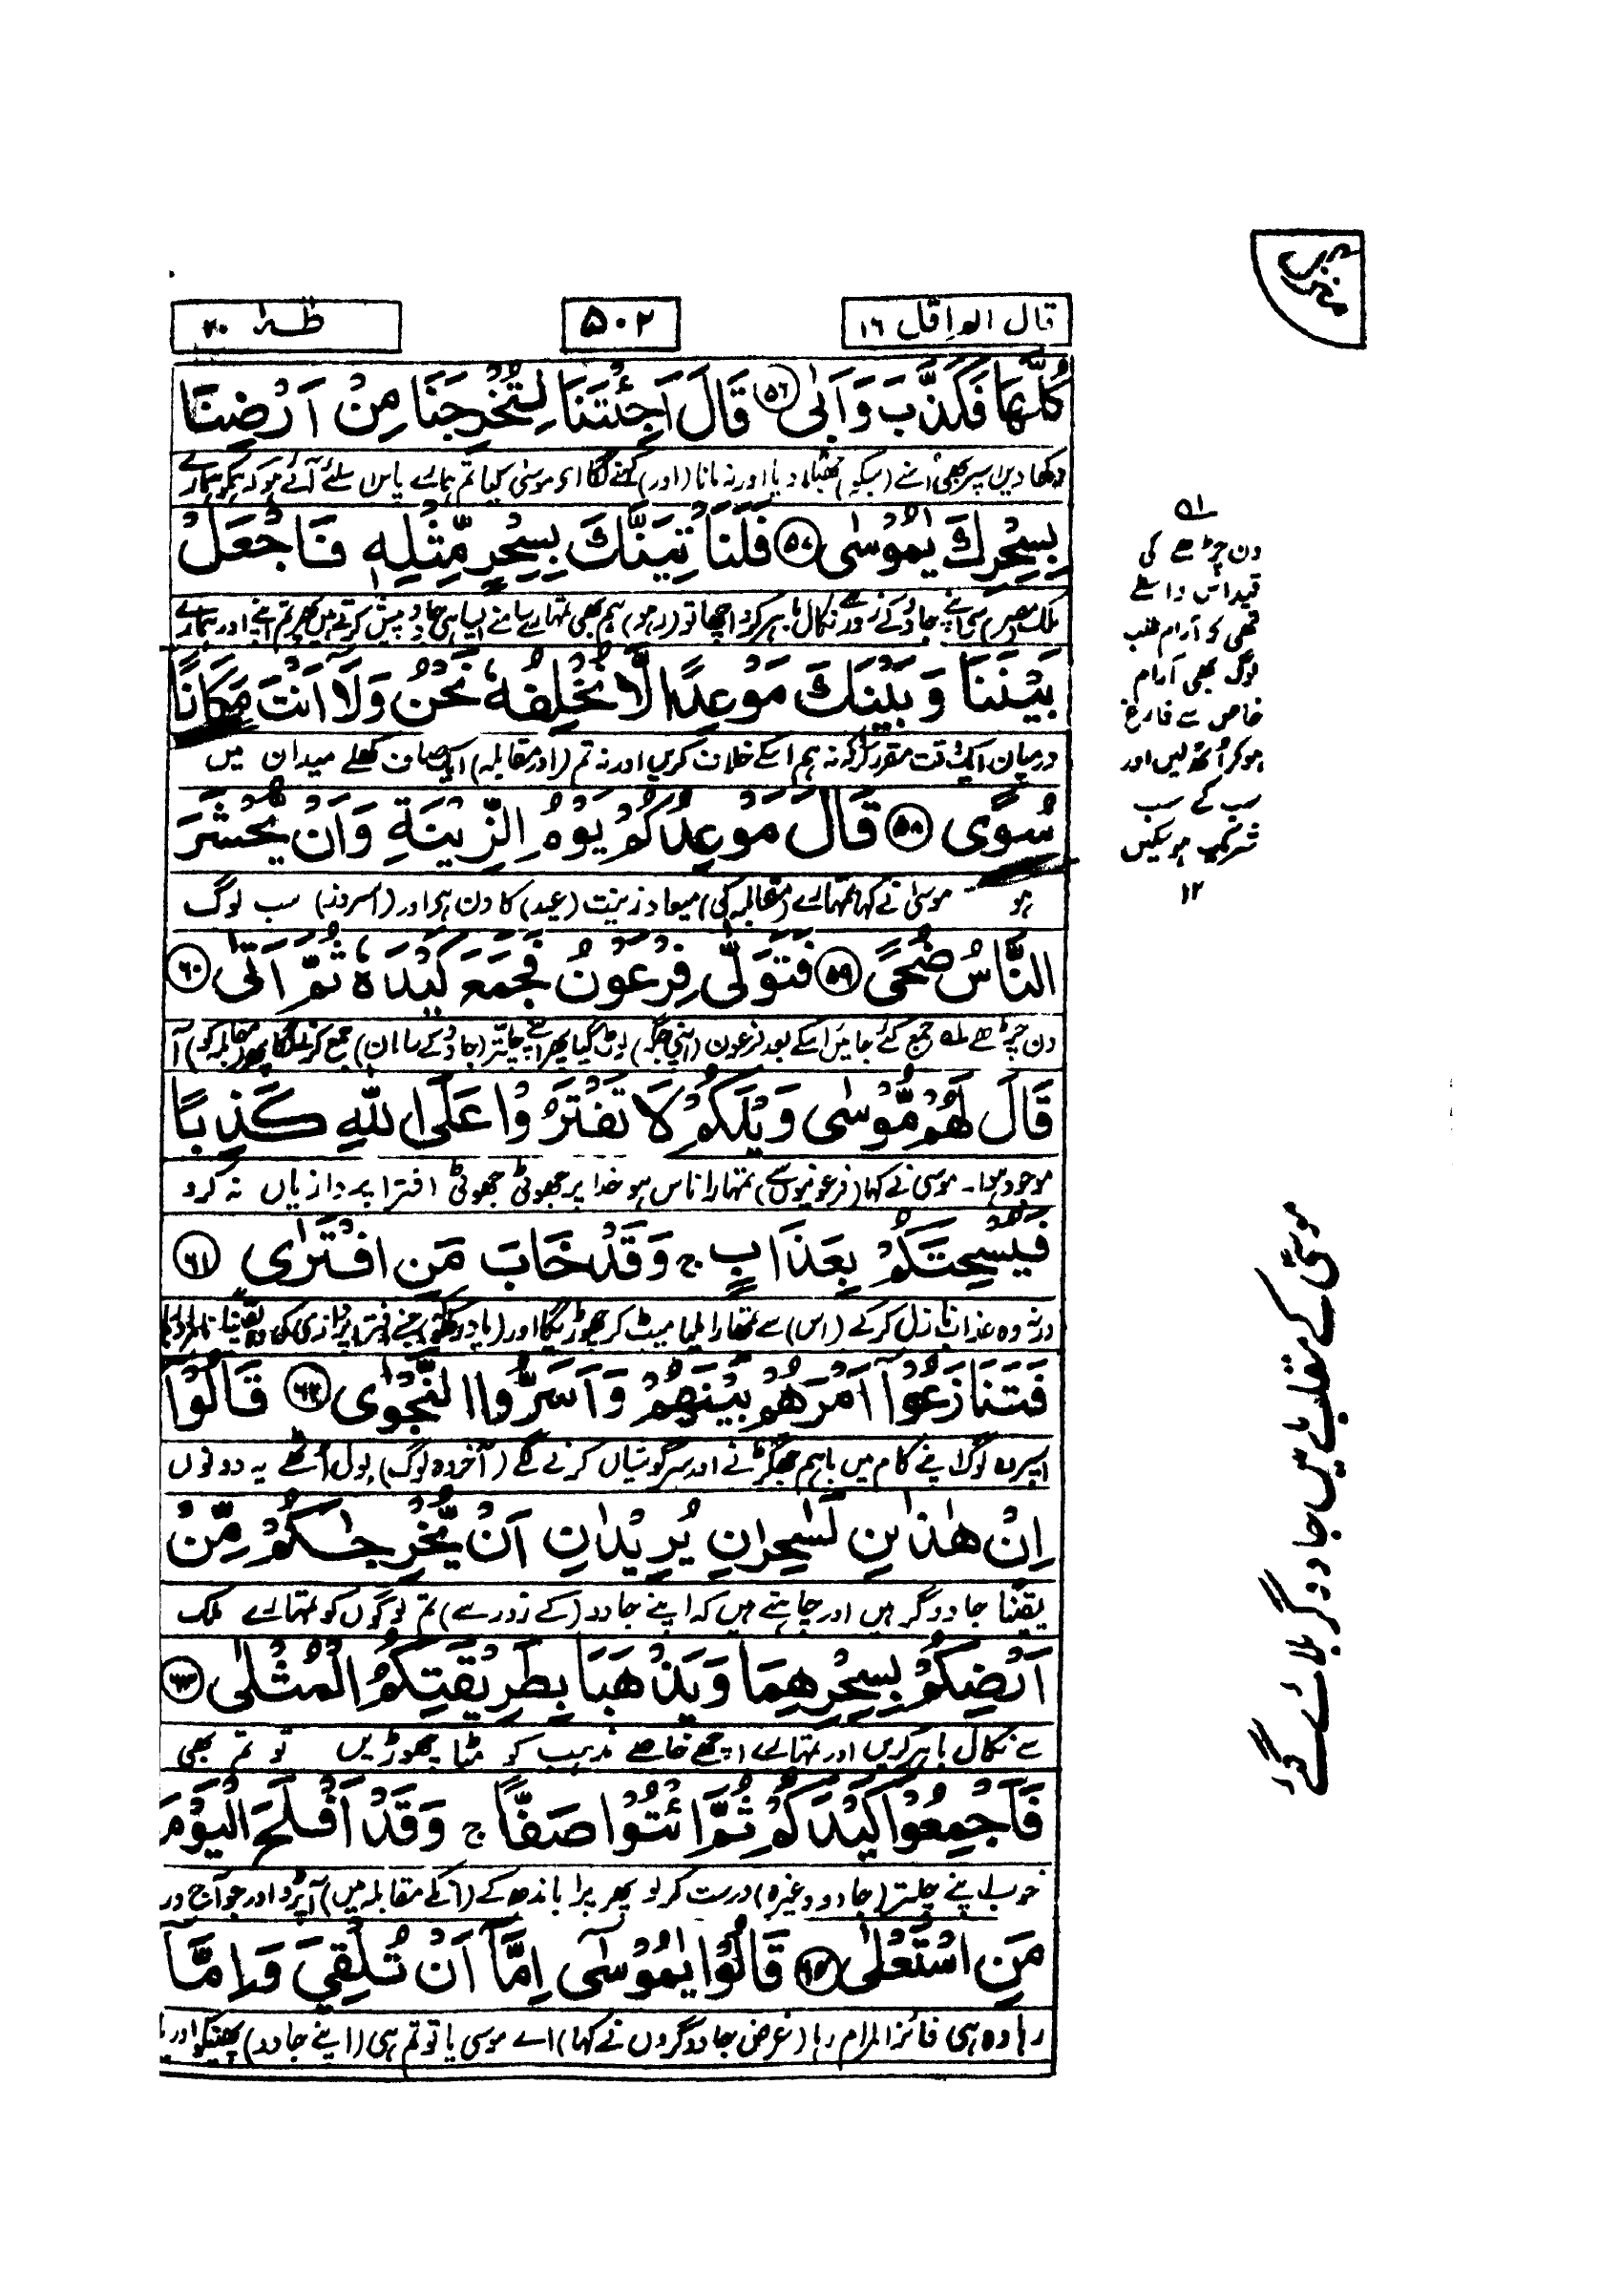 قال الم اقل ١٦
۵۰۲
طٰهٰ ۲۰
كُلَّهَا فَكَذَّبَ وَاَبٰى ﴿۵۶﴾ قَالَ اَجِئْتَنَا لِتُخْرِجَنَا مِنْ اَرْضِنَا
دکھا دیں سپر بھی اسنے جھٹلا دیا اور نہ مانا (اور) کہنے لگا اے موسیٰ کیا تم ہمارے پاس آئے ہو کہ ہمکو ہمارے
بِسِحْرِكَ يٰمُوْسٰى ﴿۵۷﴾ فَلَنَاْتِيَنَّكَ بِسِحْرٍ مِّثْلِهٖ فَاجْعَلْ
ملک مصر سے اپنے جادو کے زور سے نکال باہر کرو اچھا تو (رہو) ہم بھی تمہارے سامنے ایسا ہی جادو پیش کرتے ہیں پھر تم اپنے اور ہمارے
بَيْنَنَا وَبَيْنَكَ مَوْعِدًا لَّا نُخْلِفُهٗ نَحْنُ وَلَا اَنْتَ مَكَانًا
درمیان ایک وقت مقرر کرو کہ نہ ہم اسکے خلاف کریں اور نہ تم (اور مقابلہ) ایک صاف کھلے میدان میں
سُوًى ﴿۵۸﴾ قَالَ مَوْعِدُكُمْ يَوْمُ الزِّيْنَةِ وَاَنْ يُّحْشَرَ
ہو موسیٰ نے کہا تمہارے (مقابلہ کی) میعاد زینت (عید) کا دن ہے اور (اسروز) سب لوگ
النَّاسُ ضُحًى ﴿۵۹﴾ فَتَوَلّٰى فِرْعَوْنُ فَجَمَعَ كَيْدَهٗ ثُمَّ اَتٰى ﴿۶۰﴾
دن چڑھے ملہ جمع کئے جائیں اسکے بعد فرعون (اپنی جگہ) لوٹ گیا پھر اپنے چلتر (جادو کے سامان) جمع کرنے لگا پھر (مقابلہ کو) آ
قَالَ لَهُمْ مُّوْسٰى وَيْلَكُمْ لَا تَفْتَرُوْا عَلَى اللّٰهِ كَذِبًا
موجود ہوا۔ موسیٰ نے کہا (فرعونیوں سے) تمہارا ناس ہو خدا پر جھوٹی جھوٹی افترا پردازیاں نہ کرو
فَيُسْحِتَكُمْ بِعَذَابٍ ج وَقَدْ خَابَ مَنِ افْتَرٰى ﴿۶۱﴾
ورنہ وہ عذاب نازل کرکے (اس) سے تمہارا ملیا میٹ کر چھوڑیگا اور (یاد رکھو) جسنے افترا پردازی کی وہ یقیناً نامراد
فَتَنَازَعُوْٓا اَمْرَهُمْ بَيْنَهُمْ وَاَسَرُّوا النَّجْوٰى ﴿۶۲﴾ قَالُوْٓا
اسپر وہ لوگ اپنے کام میں باہم جھگڑنے اور سرگوشیاں کرنے لگے (آخر وہ لوگ) بول اٹھے یہ دونوں
اِنْ هٰذٰىنِ لَسٰحِرٰنِ يُرِيْدٰنِ اَنْ يُّخْرِجٰكُمْ مِّنْ
یقیناً جادوگر ہیں اور چاہتے ہیں کہ اپنے جادو (کے زور سے) تم لوگوں کو تمہارے ملک
اَرْضِكُمْ بِسِحْرِهِمَا وَيَذْهَبَا بِطَرِيْقَتِكُمُ الْمُثْلٰى ﴿۶۳﴾
سے نکال باہر کریں اور تمہارے اچھے خاصے مذہب کو مٹا چھوڑیں تو تم بھی
فَاَجْمِعُوْا كَيْدَكُمْ ثُمَّ ائْتُوْا صَفًّا ج وَقَدْ اَفْلَحَ الْيَوْمَ
خوب اپنے چلتر (جادو وغیرہ) درست کر لو پھر پرا باندھ کے (انکے مقابلہ میں) آپڑو اور جو آج ور
مَنِ اسْتَعْلٰى ﴿۶۴﴾ قَالُوْا يٰمُوْسٰٓى اِمَّآ اَنْ تُلْقِيَ وَاِمَّآ
رہا وہ ہی فائز المرام رہا (غرض جادوگروں نے کہا) اے موسیٰ یا تو تم ہی (اپنے جادو) پھینکو اور یا
۵۱
دن چڑھے کی
قید اس واسطے
تھی کہ آرام طلب
لوگ بھی آرام
خاص سے فارغ
ہوکر اُٹھ لیں اور
سب کے سب
شریک ہو سکیں
۱۲
موسیٰ کے مقابلے میں جادوگر بلائے گئے